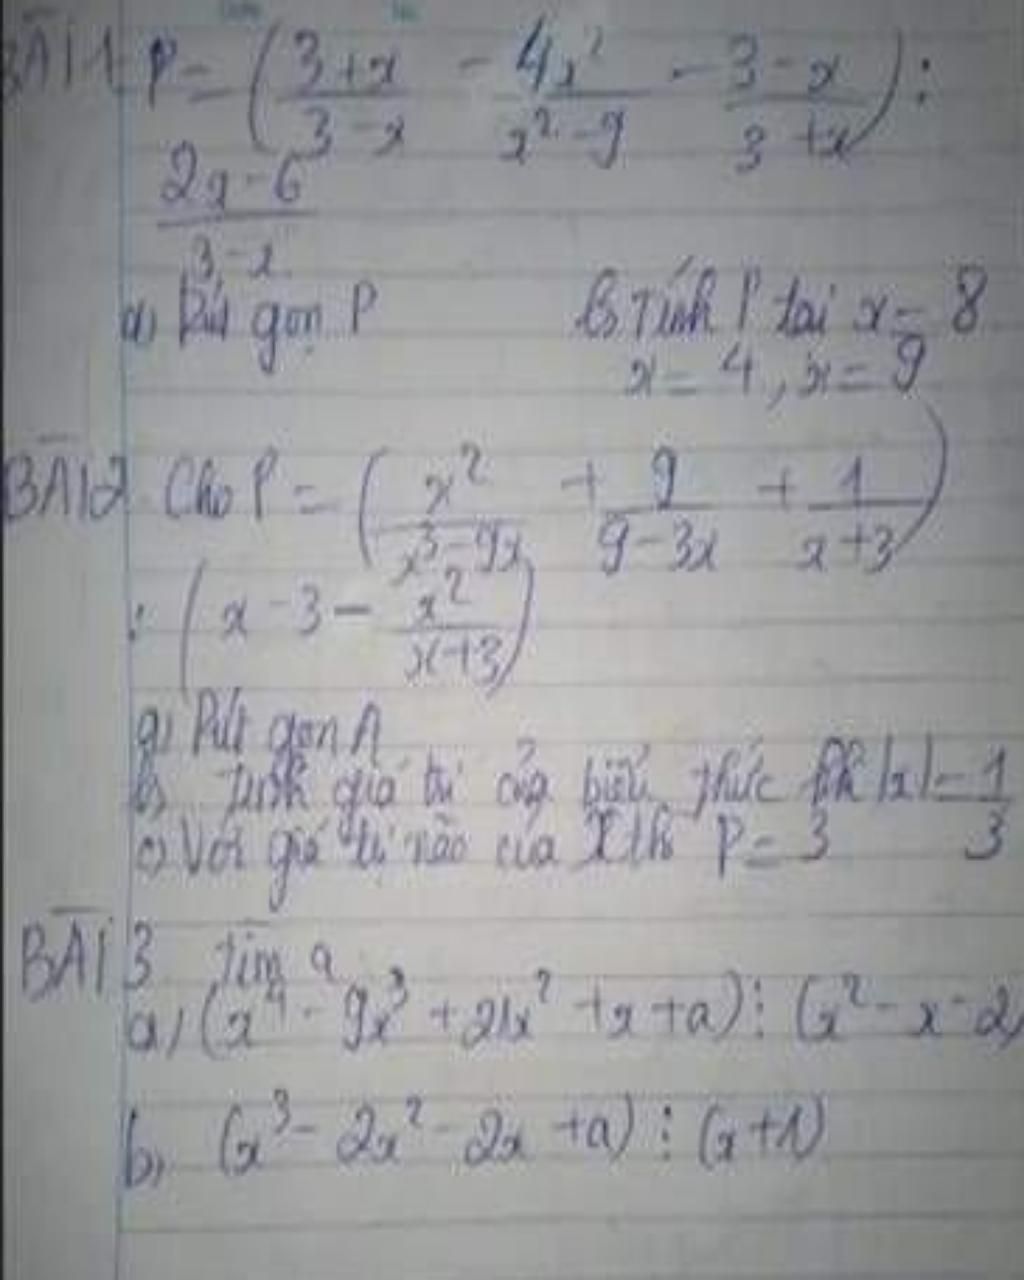 BÀI 1 P = ( (3+x)/(3-x) - 4x²/(x²-9) - (3-x)/(3+x) ) :
(2x-6)/(3-x)
a) Rút gọn P b) Tính P tại x = 8
x = 4, x = 9
BÀI 2 Cho P = ( x²/(x³-9x) + 9/(9-3x) + 1/(x+3) )
: ( x - 3 - x²/(x+3) )
a) Rút gọn A
b) tính giá trị của biểu thức khi |x| = 1/3
c) Với giá trị nào của X thì P = 3
BÀI 3 tìm a
a) (x⁴ - 9x³ + 21x² + x + a) ⋮ (x² - x - 2)
b) (x³ - 2x² - 2x + a) ⋮ (x + 1)